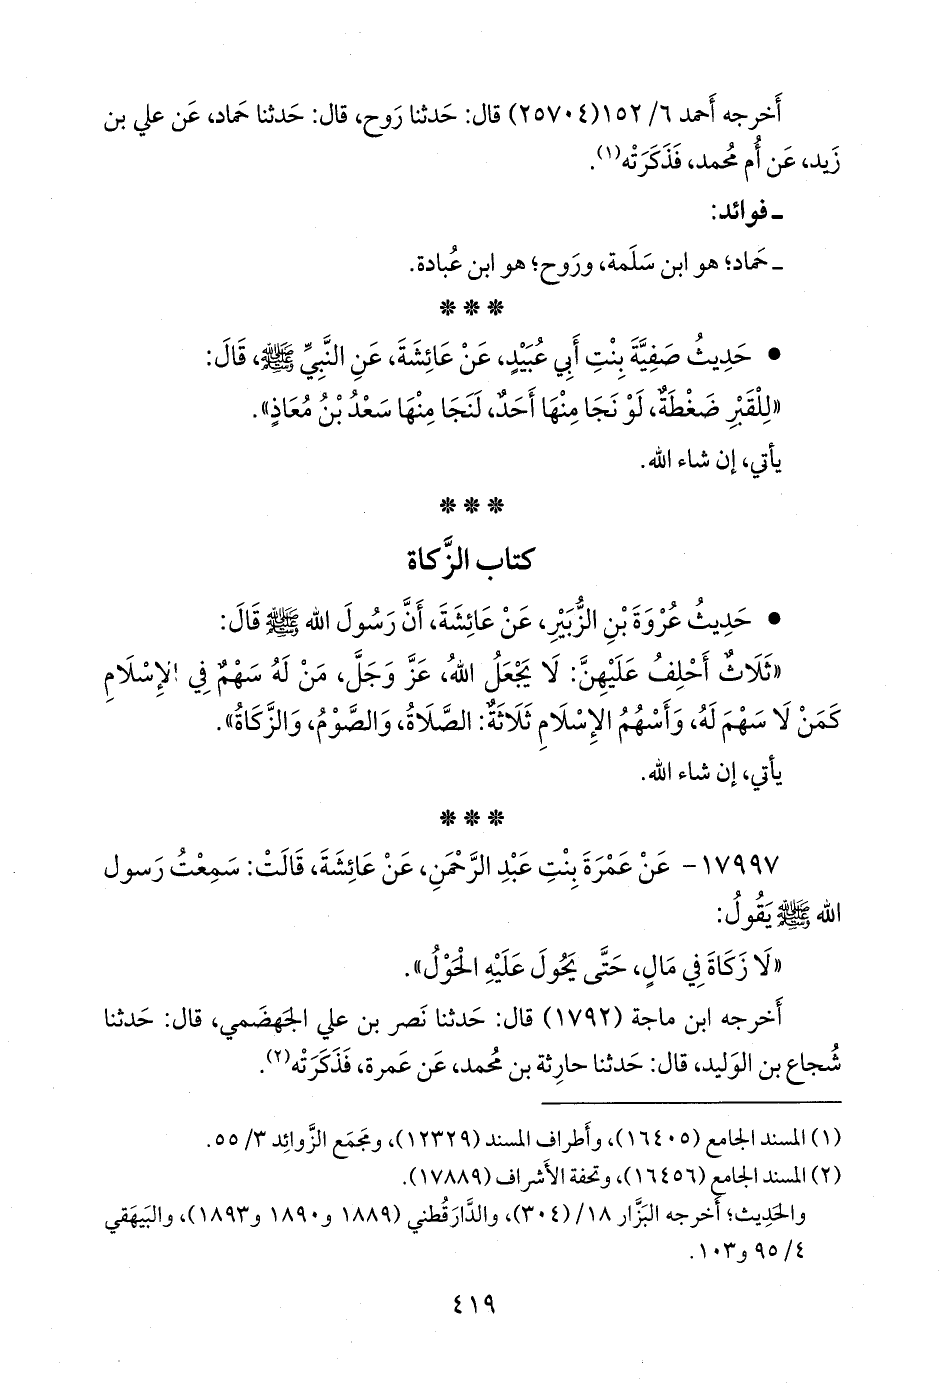 أَخرجه أَحمد ٦/ ١٥٢(٢٥٧٠٤) قال: حَدثنا رَوح، قال: حَدثنا حَماد، عَن علي بن
زَيد، عَن أُم مُحمد، فَذَكَرَتْه(١).
ـ فوائد:
ـ حَماد؛ هو ابن سَلَمة، ورَوح؛ هو ابن عُبادة.
* * *
• حَدِيثُ صَفِيَّةَ بِنْتِ أَبِي عُبَيْدٍ، عَنْ عَائِشَةَ، عَنِ النَّبِيِّ ﷺ، قَالَ:
«لِلْقَبْرِ ضَغْطَةٌ، لَوْ نَجَا مِنْهَا أَحَدٌ، لَنَجَا مِنْهَا سَعْدُ بْنُ مُعَاذٍ».
يأتي، إن شاء الله.
* * *
كتاب الزَّكاة
• حَدِيثُ عُرْوَةَ بْنِ الزُّبَيْرِ، عَنْ عَائِشَةَ، أَنَّ رَسُولَ الله ﷺ قَالَ:
«ثَلَاثٌ أَحْلِفُ عَلَيْهِنَّ: لَا يَجْعَلُ اللهُ، عَزَّ وَجَلَّ، مَنْ لَهُ سَهْمٌ فِي الإِسْلَامِ
كَمَنْ لَا سَهْمَ لَهُ، وَأَسْهُمُ الإِسْلَامِ ثَلَاثَةٌ: الصَّلَاةُ، وَالصَّوْمُ، وَالزَّكَاةُ».
يأتي، إن شاء الله.
* * *
١٧٩٩٧- عَنْ عَمْرَةَ بِنْتِ عَبْدِ الرَّحْمَنِ، عَنْ عَائِشَةَ، قَالَتْ: سَمِعْتُ رَسول
الله ﷺ يَقُولُ:
«لَا زَكَاةَ فِي مَالٍ، حَتَّى يَحُولَ عَلَيْهِ الْحَوْلُ».
أَخرجه ابن ماجة (١٧٩٢) قال: حَدثنا نَصر بن علي الجَهضَمي، قال: حَدثنا
شُجاع بن الوَليد، قال: حَدثنا حارِثة بن مُحمد، عَن عَمرة، فَذَكَرَتْه(٢).
(١) المسند الجامع (١٦٤٠٥)، وأَطراف المسند (١٢٣٢٩)، ومَجمَع الزَّوائِد ٣/ ٥٥.
(٢) المسند الجامع (١٦٤٥٦)، وتحفة الأَشراف (١٧٨٨٩).
والحَدِيث؛ أَخرجه البَزَّار ١٨/ (٣٠٤)، والدَّارَقُطني (١٨٨٩ و١٨٩٠ و١٨٩٣)، والبَيهَقي
٤/ ٩٥ و١٠٣.
٤١٩